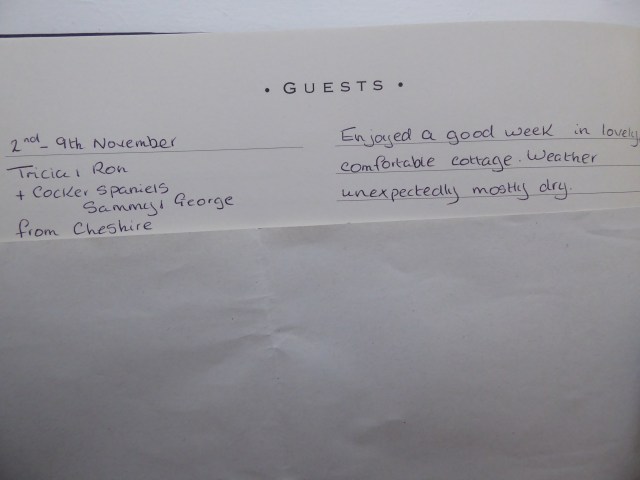 • GUESTS •
2nd - 9th November
Tricia, Ron
+ Cocker Spaniels
Sammy, George
from Cheshire
Enjoyed a good week in lovely
comfortable cottage. Weather
unexpectedly mostly dry.